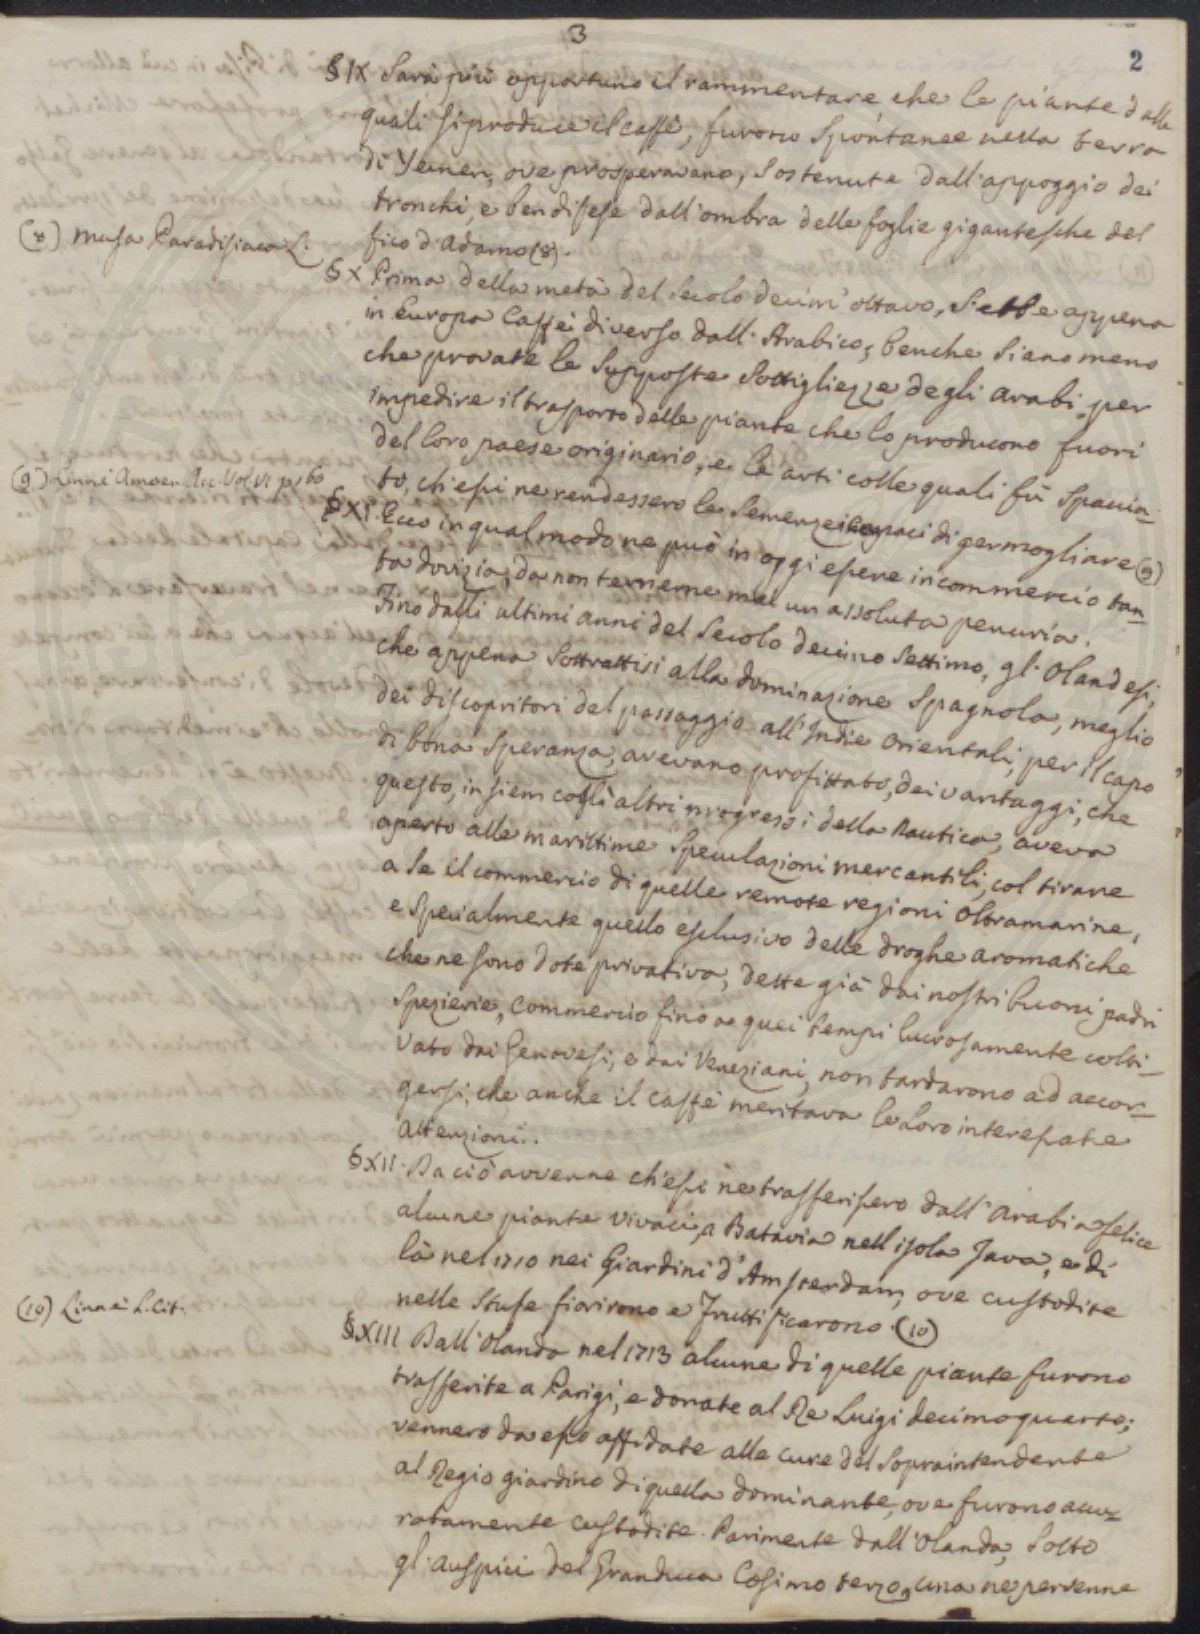 3
2
§ IX Sarà più opportuno il rammentare che le piante dalle
quali si produce il caffè, furono spontanee nella terra
di Yemen, ove prosperavano, sostenute dall'appoggio dei
tronchi, e ben difese dall'ombra delle foglie gigantesche del
fico d'Adamo (8).
(8) Musa Paradisiaca L.
§ X Prima della metà del secolo decim'ottavo, s'ebbe appena
in Europa Caffè diverso dall'Arabico, benche siano meno
che provate le supposte sottigliezze degli arabi, per
impedire il trasporto delle piante che lo producono fuori
del loro paese originario, e le arti colle quali fù spaccia-
to, ch'essi ne rendessero le semenze incapaci di germogliare (9)
(9) Linnei Amoen. Acc. Vol VI p 160
§ XI. Ecco in qual modo ne può in oggi essere in commercio tan-
ta dovizia, da non temerne mai un assoluta penuria.
Fino dalli ultimi anni del secolo decimo settimo, gl'Olandesi,
che appena sottrattisi alla dominazione Spagnola, meglio
dei discopritori del passaggio all'Indie Orientali, per il capo
di bona speranza, avevano profittato, dei vantaggi, che
questo, insiem cogli altri progressi della Nautica, aveva
aperto alle marittime speculazioni mercantili, col tirare
a se il commercio di quelle remote regioni Oltramarine,
e specialmente quello esclusivo delle droghe aromatiche
che ne sono dote privativa, dette già dai nostri buoni padri
spezierie, commercio fino a quei tempi lucrosamente colti-
vato dai Genovesi, e dai Veneziani, non tardarono ad accor-
gersi, che anche il caffè meritava le loro interessate
attenzioni..
§ XII. Da ciò avvenne ch'essi ne trasferissero dall'Arabia felice
alcune piante vivaci, a Batavia nell'isola Java, e di
là nel 1710 nei Giardini d'Amsterdam, ove custodite
nelle stufe fiorirono e fruttificarono. (10)
(10) Linnei L. Cit.
§ XIII Dall'Olanda nel 1713 alcune di quelle piante furono
trasferite a Parigi, e donate al Re Luigi decimoquarto;
vennero da esso affidate alle cure del Sopraintendente
al Regio giardino di quella dominante, ove furono accu-
ratamente custodite. Parimente dall'Olanda, sotto
gl'auspici del Granduca Cosimo terzo, una ne pervenne